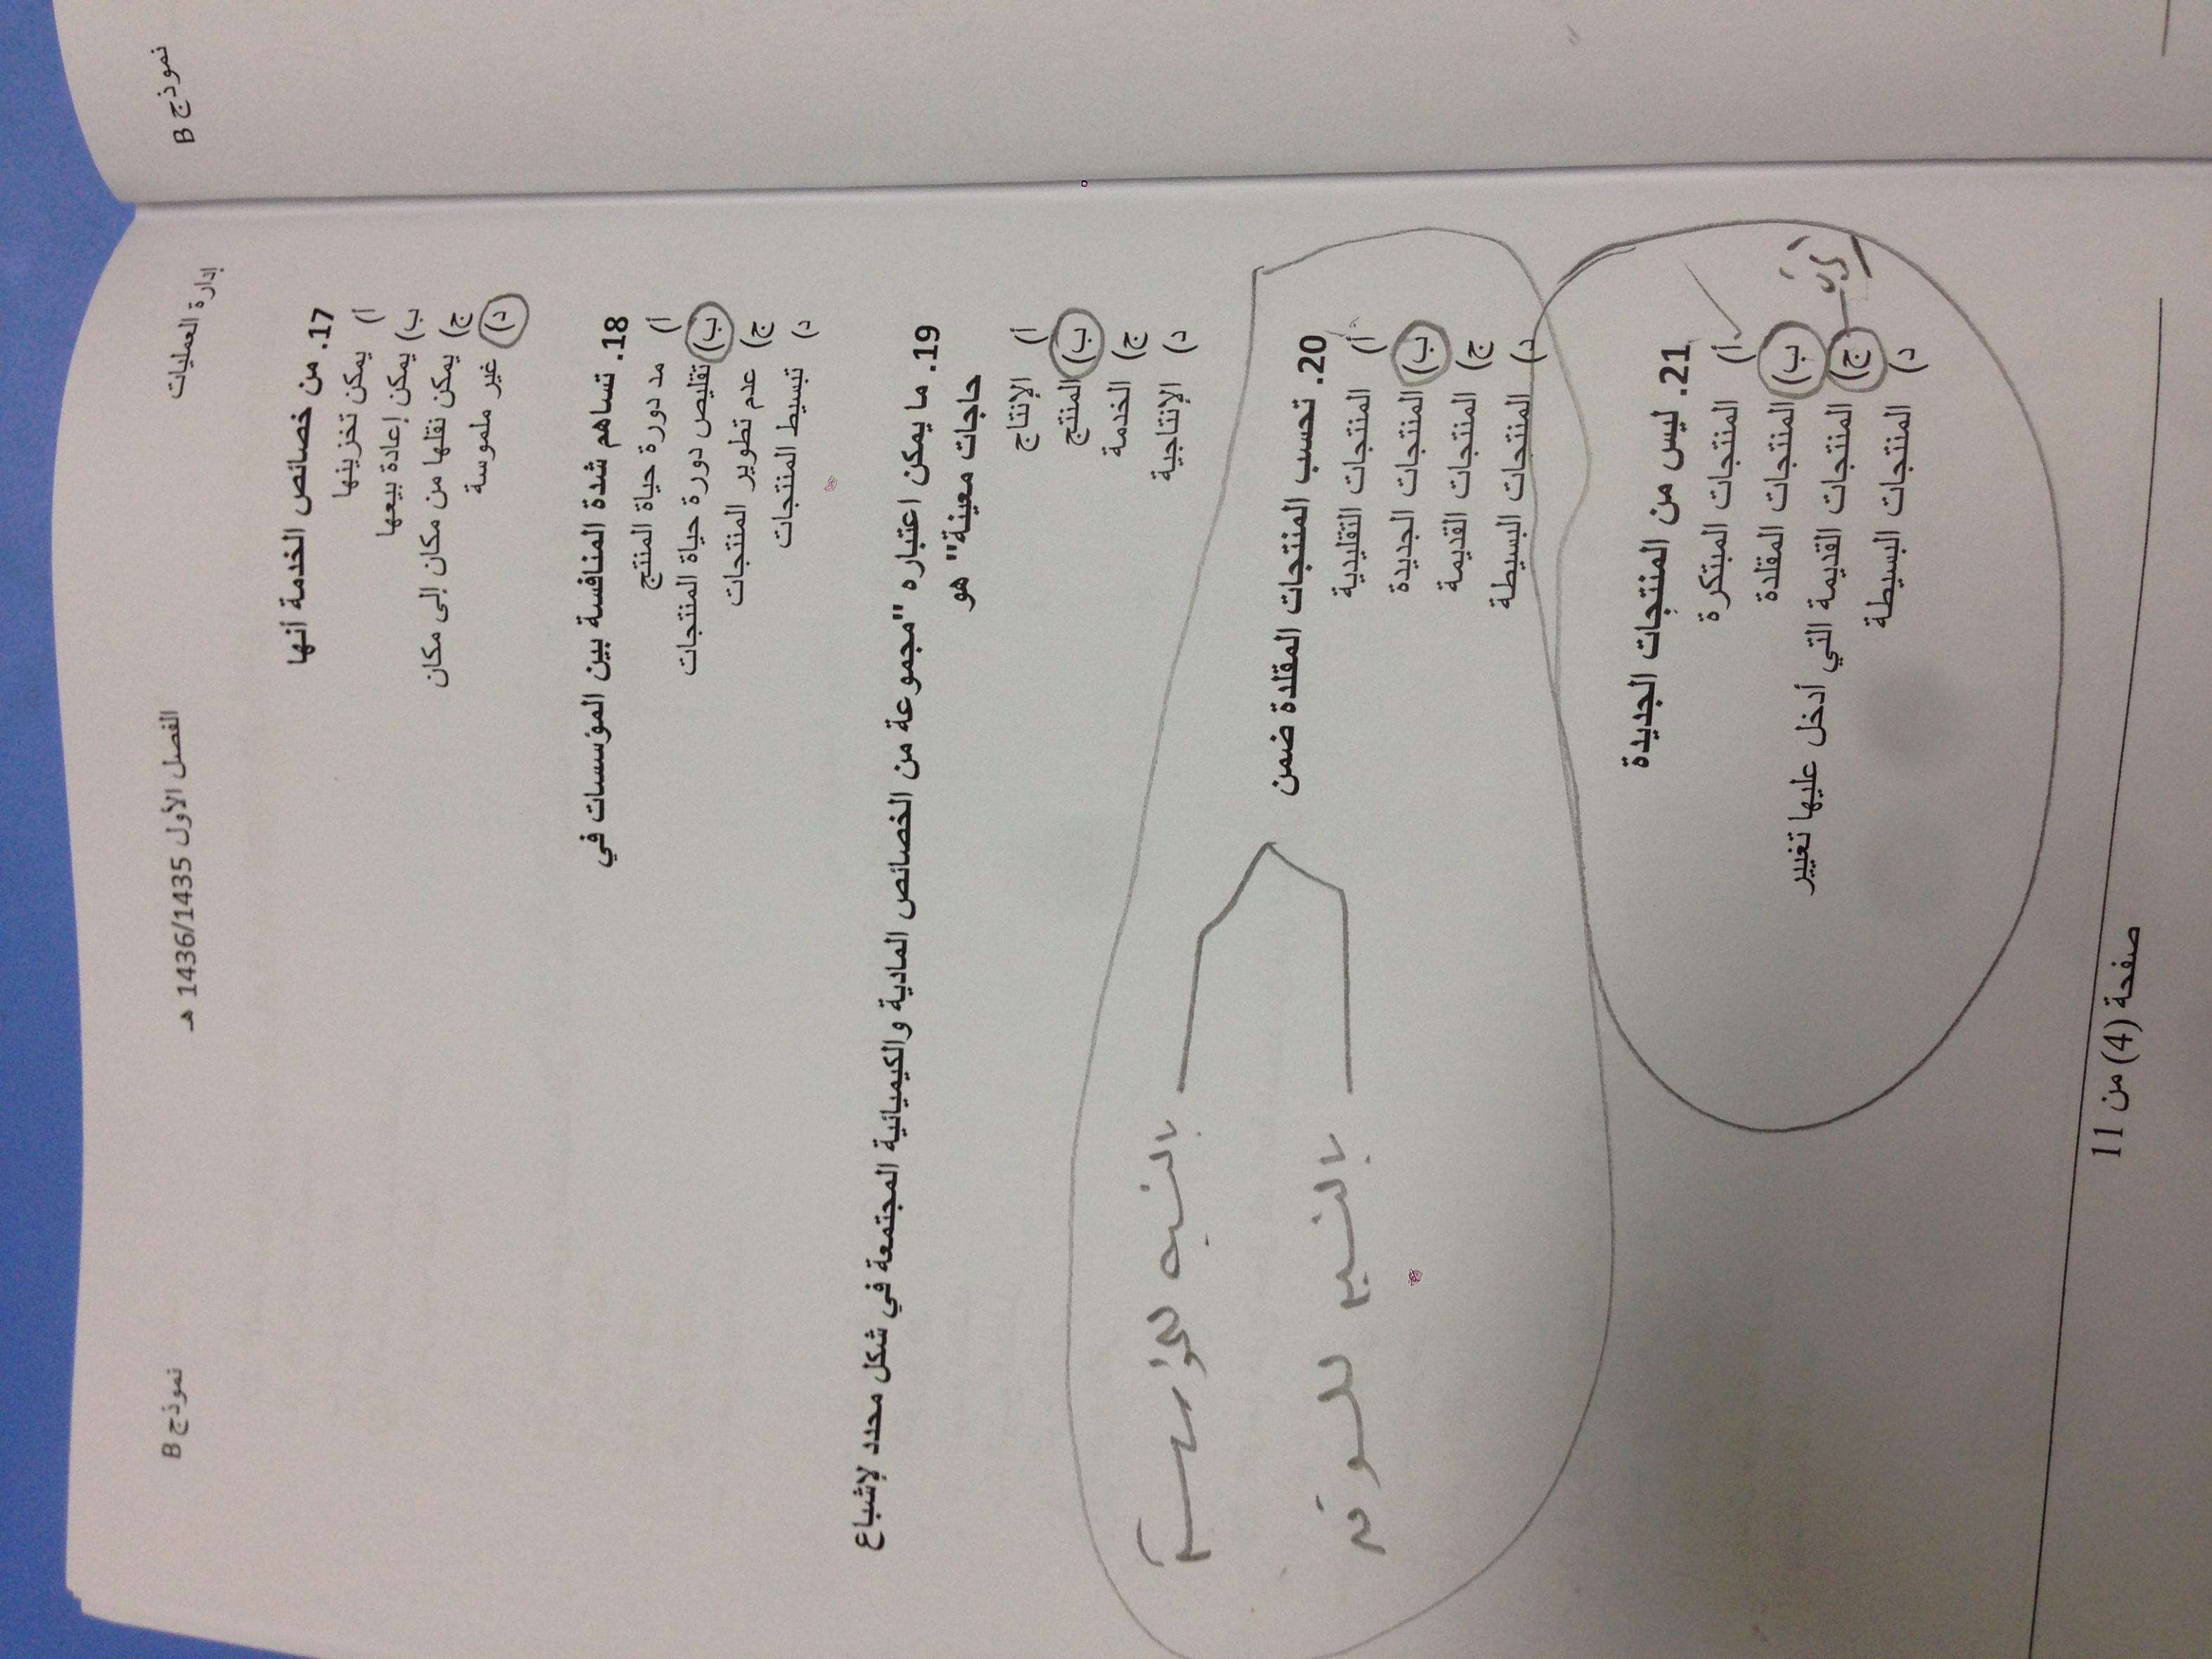 نموذج B
إدارة العمليات الفصل الأول 1436/1435 هـ نموذج B
17. من خصائص الخدمة أنها
أ) يمكن تخزينها
ب) يمكن إعادة بيعها
ج) يمكن نقلها من مكان إلى مكان
د) غير ملموسة
18. تساهم شدة المنافسة بين المؤسسات في
أ) مد دورة حياة المنتج
ب) تقليص دورة حياة المنتجات
ج) عدم تطوير المنتجات
د) تبسيط المنتجات
19. ما يمكن اعتباره "مجموعة من الخصائص المادية والكيميائية المجتمعة في شكل محدد لإشباع
حاجات معينة" هو
أ) الإنتاج
ب) المنتج
ج) الخدمة
د) الإنتاجية
20. تحسب المنتجات المقلدة ضمن
أ) المنتجات التقليدية
ب) المنتجات الجديدة
ج) المنتجات القديمة
د) المنتجات البسيطة
بالنسبه
بالنسبه للسوق
21. ليس من المنتجات الجديدة
أ) المنتجات المبتكرة
ب) المنتجات المقلدة
ج) المنتجات القديمة التي أدخل عليها تغيير
د) المنتجات البسيطة
صفحة (4) من 11